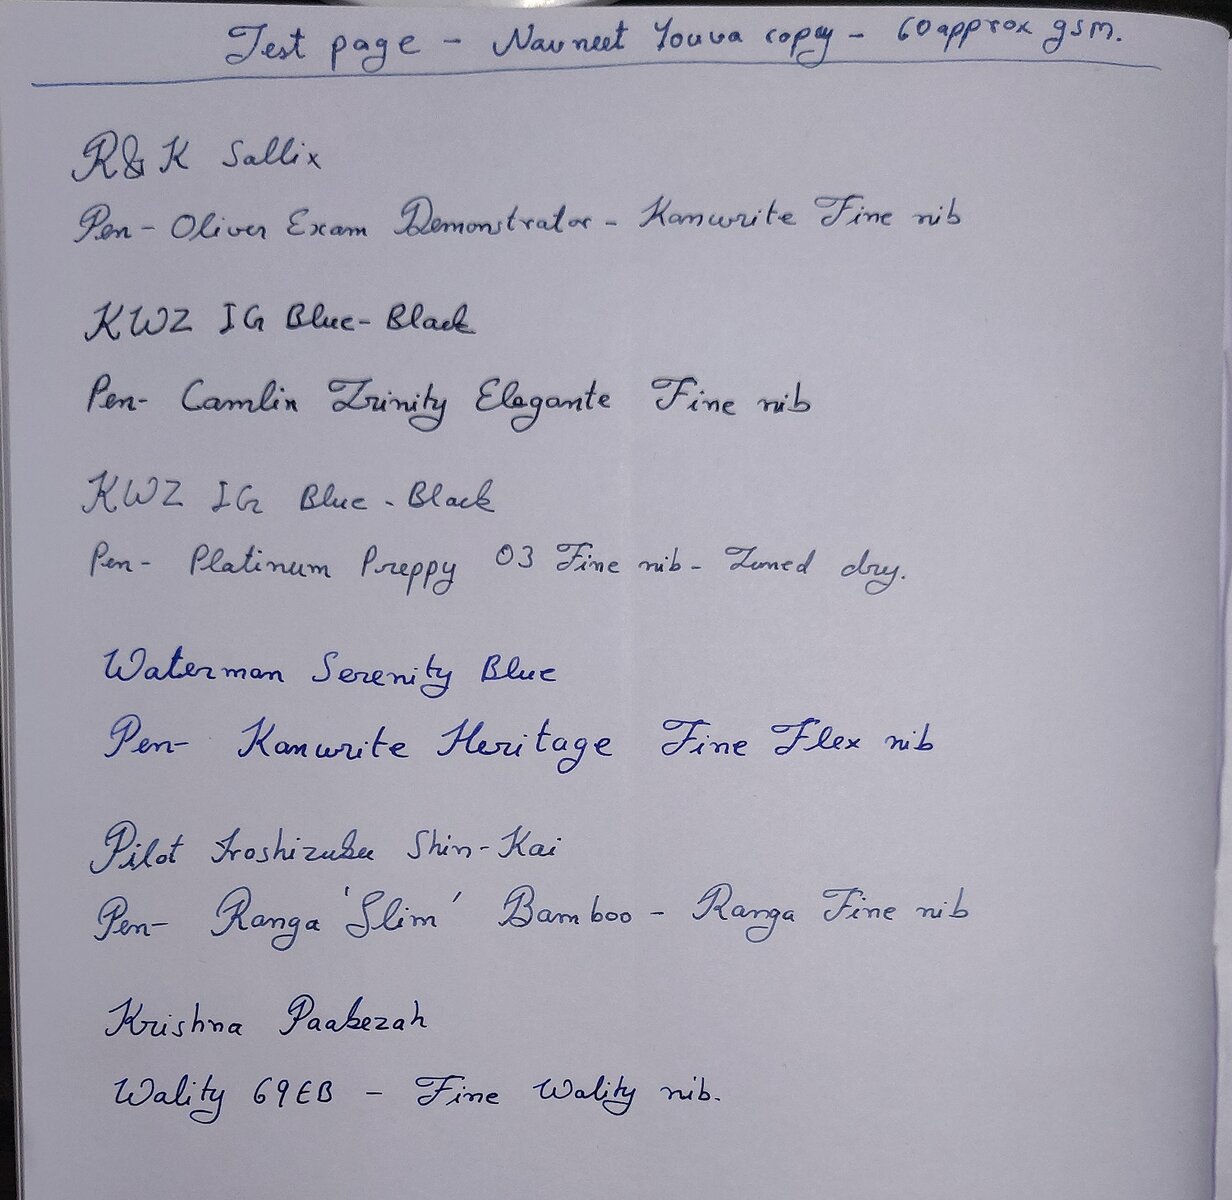 Test page - Navneet Youva copy - 60 approx gsm.
R&K Sallix
Pen - Oliver Exam Demonstrator - Kanwrite Fine nib
KWZ IG Blue-Black
Pen- Camlin Trinity Elegante Fine nib
KWZ IG Blue-Black
Pen- Platinum Preppy 03 Fine nib - Tuned dry.
Waterman Serenity Blue
Pen- Kanwrite Heritage Fine Flex nib
Pilot Iroshizuku Shin-Kai
Pen- Ranga 'Slim' Bamboo - Ranga Fine nib
Krishna Paakezah
Wality 69EB - Fine Wality nib.